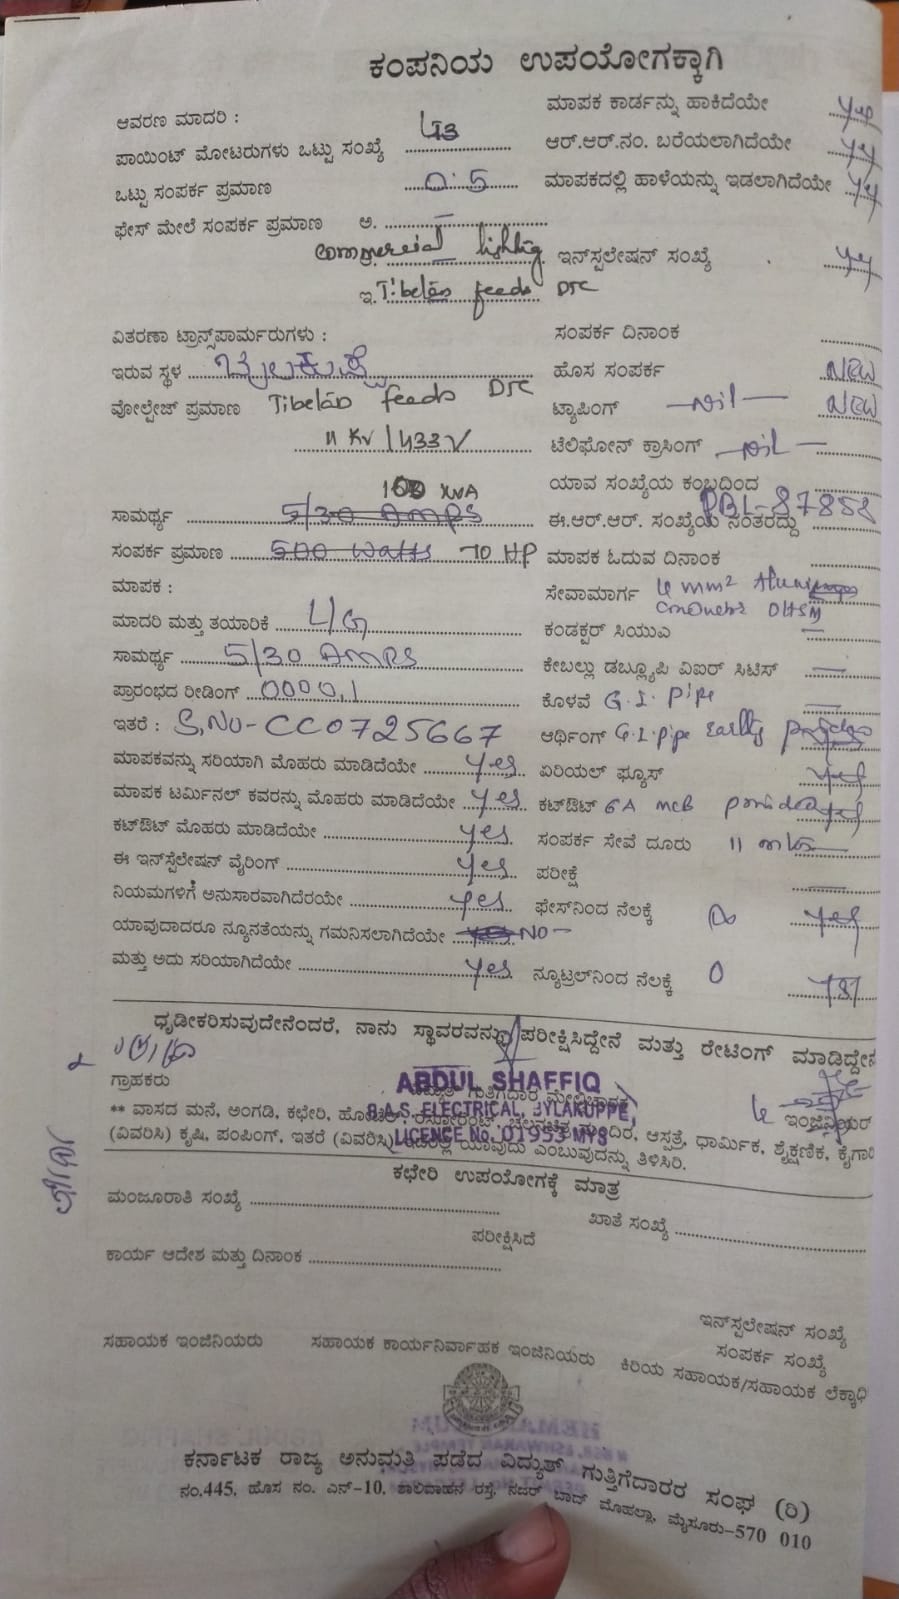 ಕಂಪನಿಯ ಉಪಯೋಗಕ್ಕಾಗಿ
ಆವರಣ ಮಾದರಿ :
ಮಾಪಕ ಕಾರ್ಡನ್ನು ಹಾಕಿದೆಯೇ
ಪಾಯಿಂಟ್ ಮೋಟರುಗಳು ಒಟ್ಟು ಸಂಖ್ಯೆ
ಆರ್.ಆರ್.ನಂ. ಬರೆಯಲಾಗಿದೆಯೇ
ಒಟ್ಟು ಸಂಪರ್ಕ ಪ್ರಮಾಣ 0.5
ಮಾಪಕದಲ್ಲಿ ಹಾಳೆಯನ್ನು ಇಡಲಾಗಿದೆಯೇ
ಫೇಸ್ ಮೇಲೆ ಸಂಪರ್ಕ ಪ್ರಮಾಣ ಅ.
Commercial lighting
ಇನ್‌ಸ್ಟಲೇಷನ್ ಸಂಖ್ಯೆ
ಇ. Tibetan feeds DTC
ವಿತರಣಾ ಟ್ರಾನ್ಸ್‌ಪಾರ್ಮರುಗಳು :
ಸಂಪರ್ಕ ದಿನಾಂಕ
ಇರುವ ಸ್ಥಳ ಬೈಲಕುಪ್ಪೆ
ಹೊಸ ಸಂಪರ್ಕ NEW
ವೋಲ್ಟೇಜ್ ಪ್ರಮಾಣ Tibetan feeds DTC
ಟ್ಯಾಪಿಂಗ್ —Nil— NEW
11 KV/433V
ಟೆಲಿಫೋನ್ ಕ್ರಾಸಿಂಗ್ —Nil—
ಯಾವ ಸಂಖ್ಯೆಯ ಕಂಬದಿಂದ
100 KVA
ಸಾಮರ್ಥ್ಯ 5/30 AMPS
ಈ.ಆರ್.ಆರ್. ಸಂಖ್ಯೆಯ ನಂತರದ್ದು
ಸಂಪರ್ಕ ಪ್ರಮಾಣ 500 Watts 70 HP
ಮಾಪಕ ಓದುವ ದಿನಾಂಕ
ಮಾಪಕ :
ಸೇವಾಮಾರ್ಗ 4 mm²
ಮಾದರಿ ಮತ್ತು ತಯಾರಿಕೆ L/G
ಕಂಡಕ್ಟರ್ ಸಿಯುಎ —
ಸಾಮರ್ಥ್ಯ 5/30 AMPS
ಕೇಬಲ್ಲು ಡಬ್ಲ್ಯೂಪಿ ವಿಐರ್ ಸಿಟಿಸ್ —
ಪ್ರಾರಂಭದ ರೀಡಿಂಗ್ 0000.1
ಕೊಳವೆ G.I. Pipe —
ಇತರೆ : S.No-CC0725667
ಆರ್ಥಿಂಗ್ G.I. pipe Earthy
ಮಾಪಕವನ್ನು ಸರಿಯಾಗಿ ಮೊಹರು ಮಾಡಿದೆಯೇ yes
ಏರಿಯಲ್ ಫ್ಯೂಸ್ yes
ಮಾಪಕ ಟರ್ಮಿನಲ್ ಕವರನ್ನು ಮೊಹರು ಮಾಡಿದೆಯೇ yes
ಕಟ್‌ಔಟ್ 6A mcb
ಕಟ್‌ಔಟ್ ಮೊಹರು ಮಾಡಿದೆಯೇ yes
ಸಂಪರ್ಕ ಸೇವೆ ದೂರು 11 mts
ಈ ಇನ್‌ಸ್ಪೆಲೇಷನ್ ವೈರಿಂಗ್ yes
ಪರೀಕ್ಷೆ —
ನಿಯಮಗಳಿಗೆ ಅನುಸಾರವಾಗಿದೆರಯೇ yes
ಫೇಸ್‌ನಿಂದ ನೆಲಕ್ಕೆ yes
ಯಾವುದಾದರೂ ನ್ಯೂನತೆಯನ್ನು ಗಮನಿಸಲಾಗಿದೆಯೇ NO-
ಮತ್ತು ಅದು ಸರಿಯಾಗಿದೆಯೇ yes
ನ್ಯೂಟ್ರಲ್‌ನಿಂದ ನೆಲಕ್ಕೆ
ಧೃಡೀಕರಿಸುವುದೇನೆಂದರೆ, ನಾನು ಸ್ಥಾವರವನ್ನು ಪರೀಕ್ಷಿಸಿದ್ದೇನೆ ಮತ್ತು ರೇಟಿಂಗ್ ಮಾಡಿದ್ದೇನೆ
ABDUL SHAFFIQ
ಗ್ರಾಹಕರು ವಿದ್ಯುತ್ ಗುತ್ತಿಗೆದಾರ ಮೇಲ್ವಿಚಾರಕ ಇಂಜಿನಿಯರ್
B.A.S. ELECTRICAL, BYLAKUPPE,
** ವಾಸದ ಮನೆ, ಅಂಗಡಿ, ಕಛೇರಿ, ಹೋಟೆಲ್, ರೆಸ್ಟೋರೆಂಟ್, ಚಲನಚಿತ್ರ ಮಂದಿರ, ಆಸ್ಪತ್ರೆ, ಧಾರ್ಮಿಕ, ಶೈಕ್ಷಣಿಕ,
LICENCE No. 01953 MYS
(ವಿವರಿಸಿ) ಕೃಷಿ, ಪಂಪಿಂಗ್, ಇತರೆ (ವಿವರಿಸಿ) ಇದರಲ್ಲಿ ಯಾವುದು ಎಂಬುವುದನ್ನು ತಿಳಿಸಿರಿ.
ಕಛೇರಿ ಉಪಯೋಗಕ್ಕೆ ಮಾತ್ರ
ಮಂಜೂರಾತಿ ಸಂಖ್ಯೆ
ಖಾತೆ ಸಂಖ್ಯೆ
ಪರೀಕ್ಷಿಸಿದೆ
ಕಾರ್ಯ ಆದೇಶ ಮತ್ತು ದಿನಾಂಕ
ಇನ್‌ಸ್ಪಲೇಷನ್ ಸಂಖ್ಯೆ
ಸಂಪರ್ಕ ಸಂಖ್ಯೆ
ಸಹಾಯಕ ಇಂಜಿನಿಯರು ಸಹಾಯಕ ಕಾರ್ಯನಿರ್ವಾಹಕ ಇಂಜಿನಿಯರು ಕಿರಿಯ ಸಹಾಯಕ/ಸಹಾಯಕ
ಕರ್ನಾಟಕ ರಾಜ್ಯ ಅನುಮತಿ ಪಡೆದ ವಿದ್ಯುತ್ ಗುತ್ತಿಗೆದಾರರ ಸಂಘ (ರಿ)
ನಂ.445, ಹೊಸ ನಂ. ಎನ್-10, ಶಾಲಿವಾಹನ ರಸ್ತೆ, ನಜರ್ ಬಾದ್ ಮೊಹಲ್ಲಾ, ಮೈಸೂರು-570 010